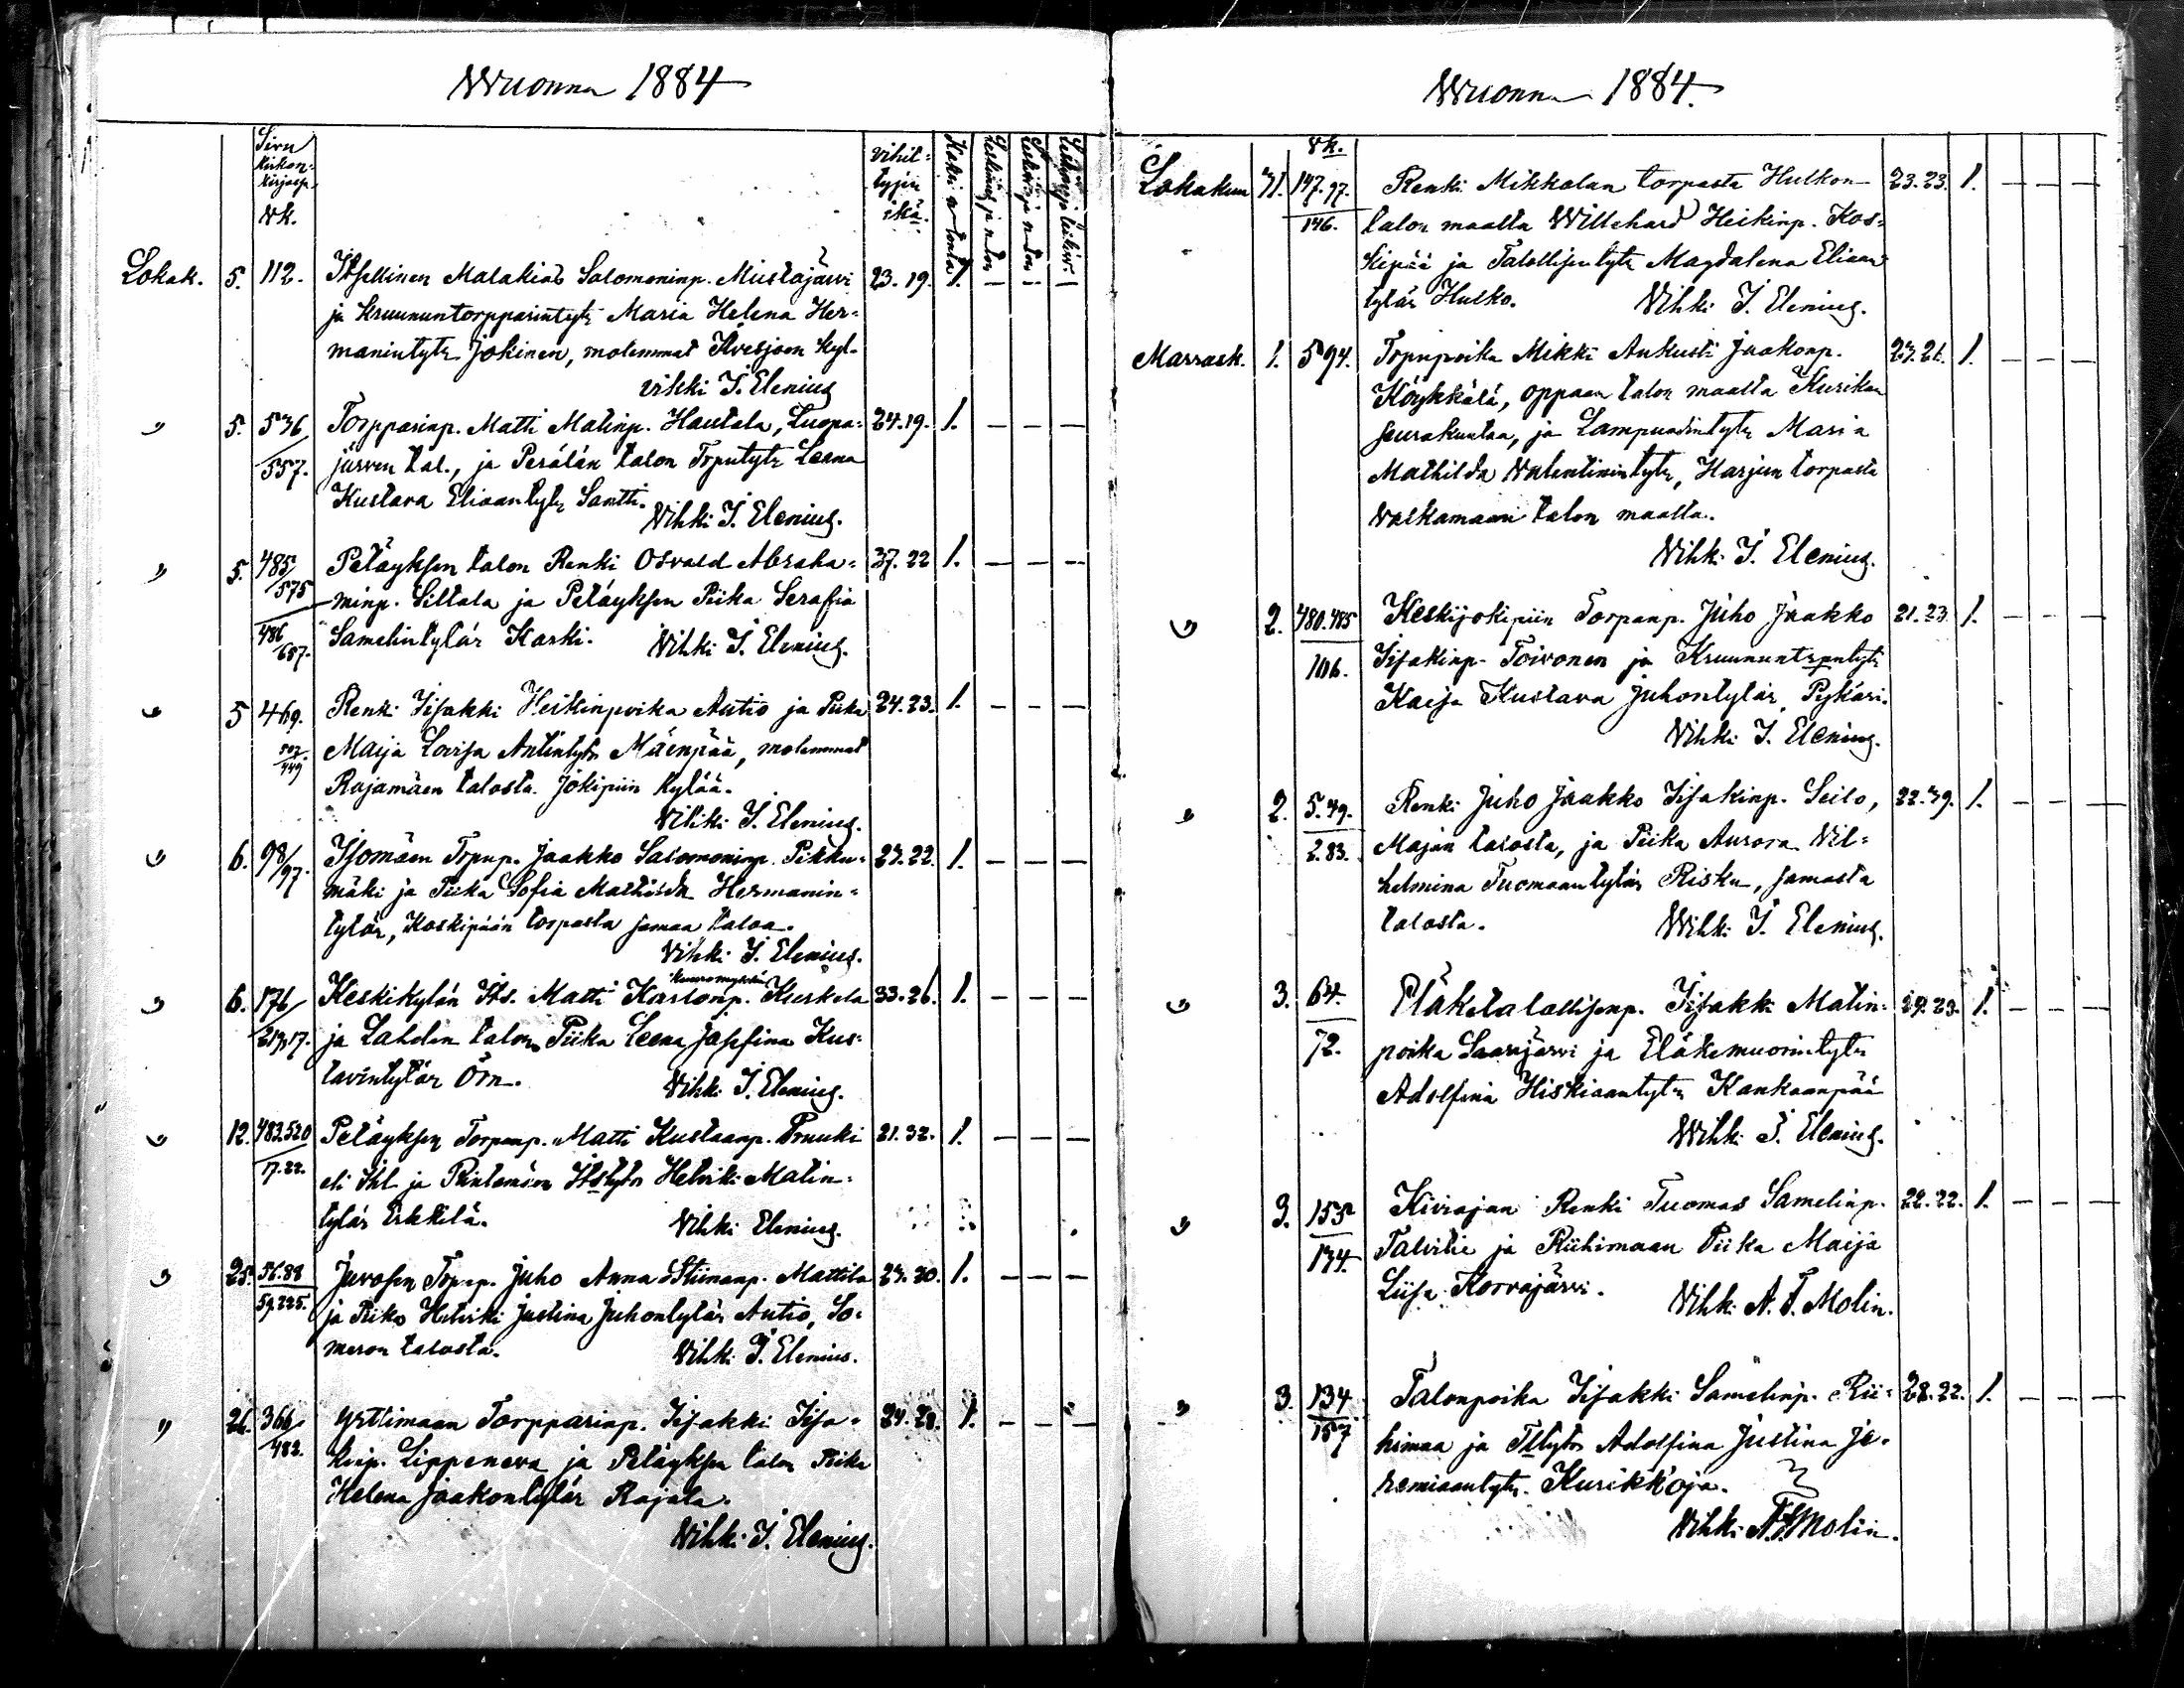 Wuonna 1884
Sivu kirkonkirjasta
Vk.
vihittyjen ikä.
Lokak. 5. 112. Itsellinen Malakias Salomoninp. Mustajärvi 23. 19. 1. — — —
ja Kruununtorpparintytr Maria Helena Her-
manintytr Jokinen, molemmat Ilvesjoen kyl.
vihki I. Elenius
" 5. 536/557. Torpparinp. Matti Matinp. Hautala, Luopa- 24. 19. 1. — — —
järven tal., ja Perälän talon Trputytr Leena
Kustava Eliaantytr Santti.
Vihki I. Elenius.
" 5. 485/575 Peläyksen talon Renki Osvald Abraha- 37. 22 1. — — —
minp. Siltala ja Peläyksen Piika Serafia
486/687. Samelintytär Koski. Vihki I. Elenius.
" 5 469. Renki Iisakki Heikinpoika Autio ja Piika 24. 23. 1. — — —
Maija Lovisa Antintytr Mäenpää, molemmat
449
Rajamäen talosta Jokipiin kylää.
Vihki I. Elenius.
" 6. 98/97. Isomäen Trpup. Jaakko Salomoninp. Pikku- 23. 22. 1. — — —
mäki ja Piika Sofia Mathilda Hermanin-
tytär, Koskipään torpasta samaa taloa.
Vihki I. Elenius.
" 6. 176/219,17. Keskikylän Its. Matti Kaarlonp. Kuskela 33. 26. 1. — — —
ja Lahdin talon Piika Leena Josefina Kus-
tavintytär Örn. Vihki I. Elenius.
" 12. 483.520 Peläyksen Torpanp. Matti Kustaanp. Pruuki 21. 32. 1. — — —
17.22. eli Ihl ja Rintamäen Itstytr Helviki Matin-
tytär Erkkilä. Vihki Elenius.
" 25. 56.88 Juvosen Trpup. Juho Anna Stiinanp. Mattila 23. 20. 1. — — —
59.225. ja Piika Helviki Justina Juhontytär Autio, So-
meron talosta. Vihki I. Elenius.
" 26. 366/482. Yrttimaan Torpparinp. Iisakki Iisa- 24. 28. 1. — — —
kinp. Lippeneva ja Peläyksen talon Piika
Helena Jaakontytär Rajala.
Vihki I. Elenius.
Wuonna 1884.
Vk.
Lokakuu 31. 147.97. Renki Mikkolan torpasta Hulkon 23. 23. 1. — — —
146. talon maalta Willehard Heikinp. Kos-
kipää ja Talollisentytr Magdalena Eliaan
tytär Hulko. Vihki I. Elenius.
Marrask. 1. 594. Trpupoika Mikki Aukusti Jaakonp. 23. 21. 1. — — —
Köykkälä, Oppaan talon maalta Kurikan
seurakuntaa, ja Lampuodintytr Maria
Mathilda Valentinintytr, Harjun torpasta
Valkamaan talon maalta.
Vihki I. Elenius.
" 2. 480.485 Keskijokipiin Torpanp. Juho Jaakko 21. 23. 1. — — —
106. Iisakinp. Toivonen ja Kruununtrpntytr
Kaisa Kustava Juhontytär, Pykäri.
Vihki I. Elenius.
" 2. 5.49. Renki Juho Jaakko Iisakinp. Seilo, 22. 39. 1. — — —
2.83. Majan talosta, ja Piika Aurora Vil-
helmina Tuomaantytär Risku, samasta
talosta. Vihki I. Elenius.
" 3. 64. Eläketalollisenp. Iisakki Matin- 29. 23. 1. — — —
72. poika Saarijärvi ja Eläkemuorintytr
Adolfina Hiskiaantytr Kankaanpää
Vihki I. Elenius.
" 3. 155 Kivirajan Renki Tuomas Samelinp. 22. 22. 1. — — —
134. Talvitie ja Riihimaan Piika Maija
Liisa Korvajärvi. Vihki A. F. Molin.
" 3. 134 Talonpoika Iisakki Samelinp. Rii- 28. 22. 1. — — —
157 himaa ja Tltytr Adolfina Justina Je-
remiaantytr Kurikkoja.
Vihki A. F. Molin.